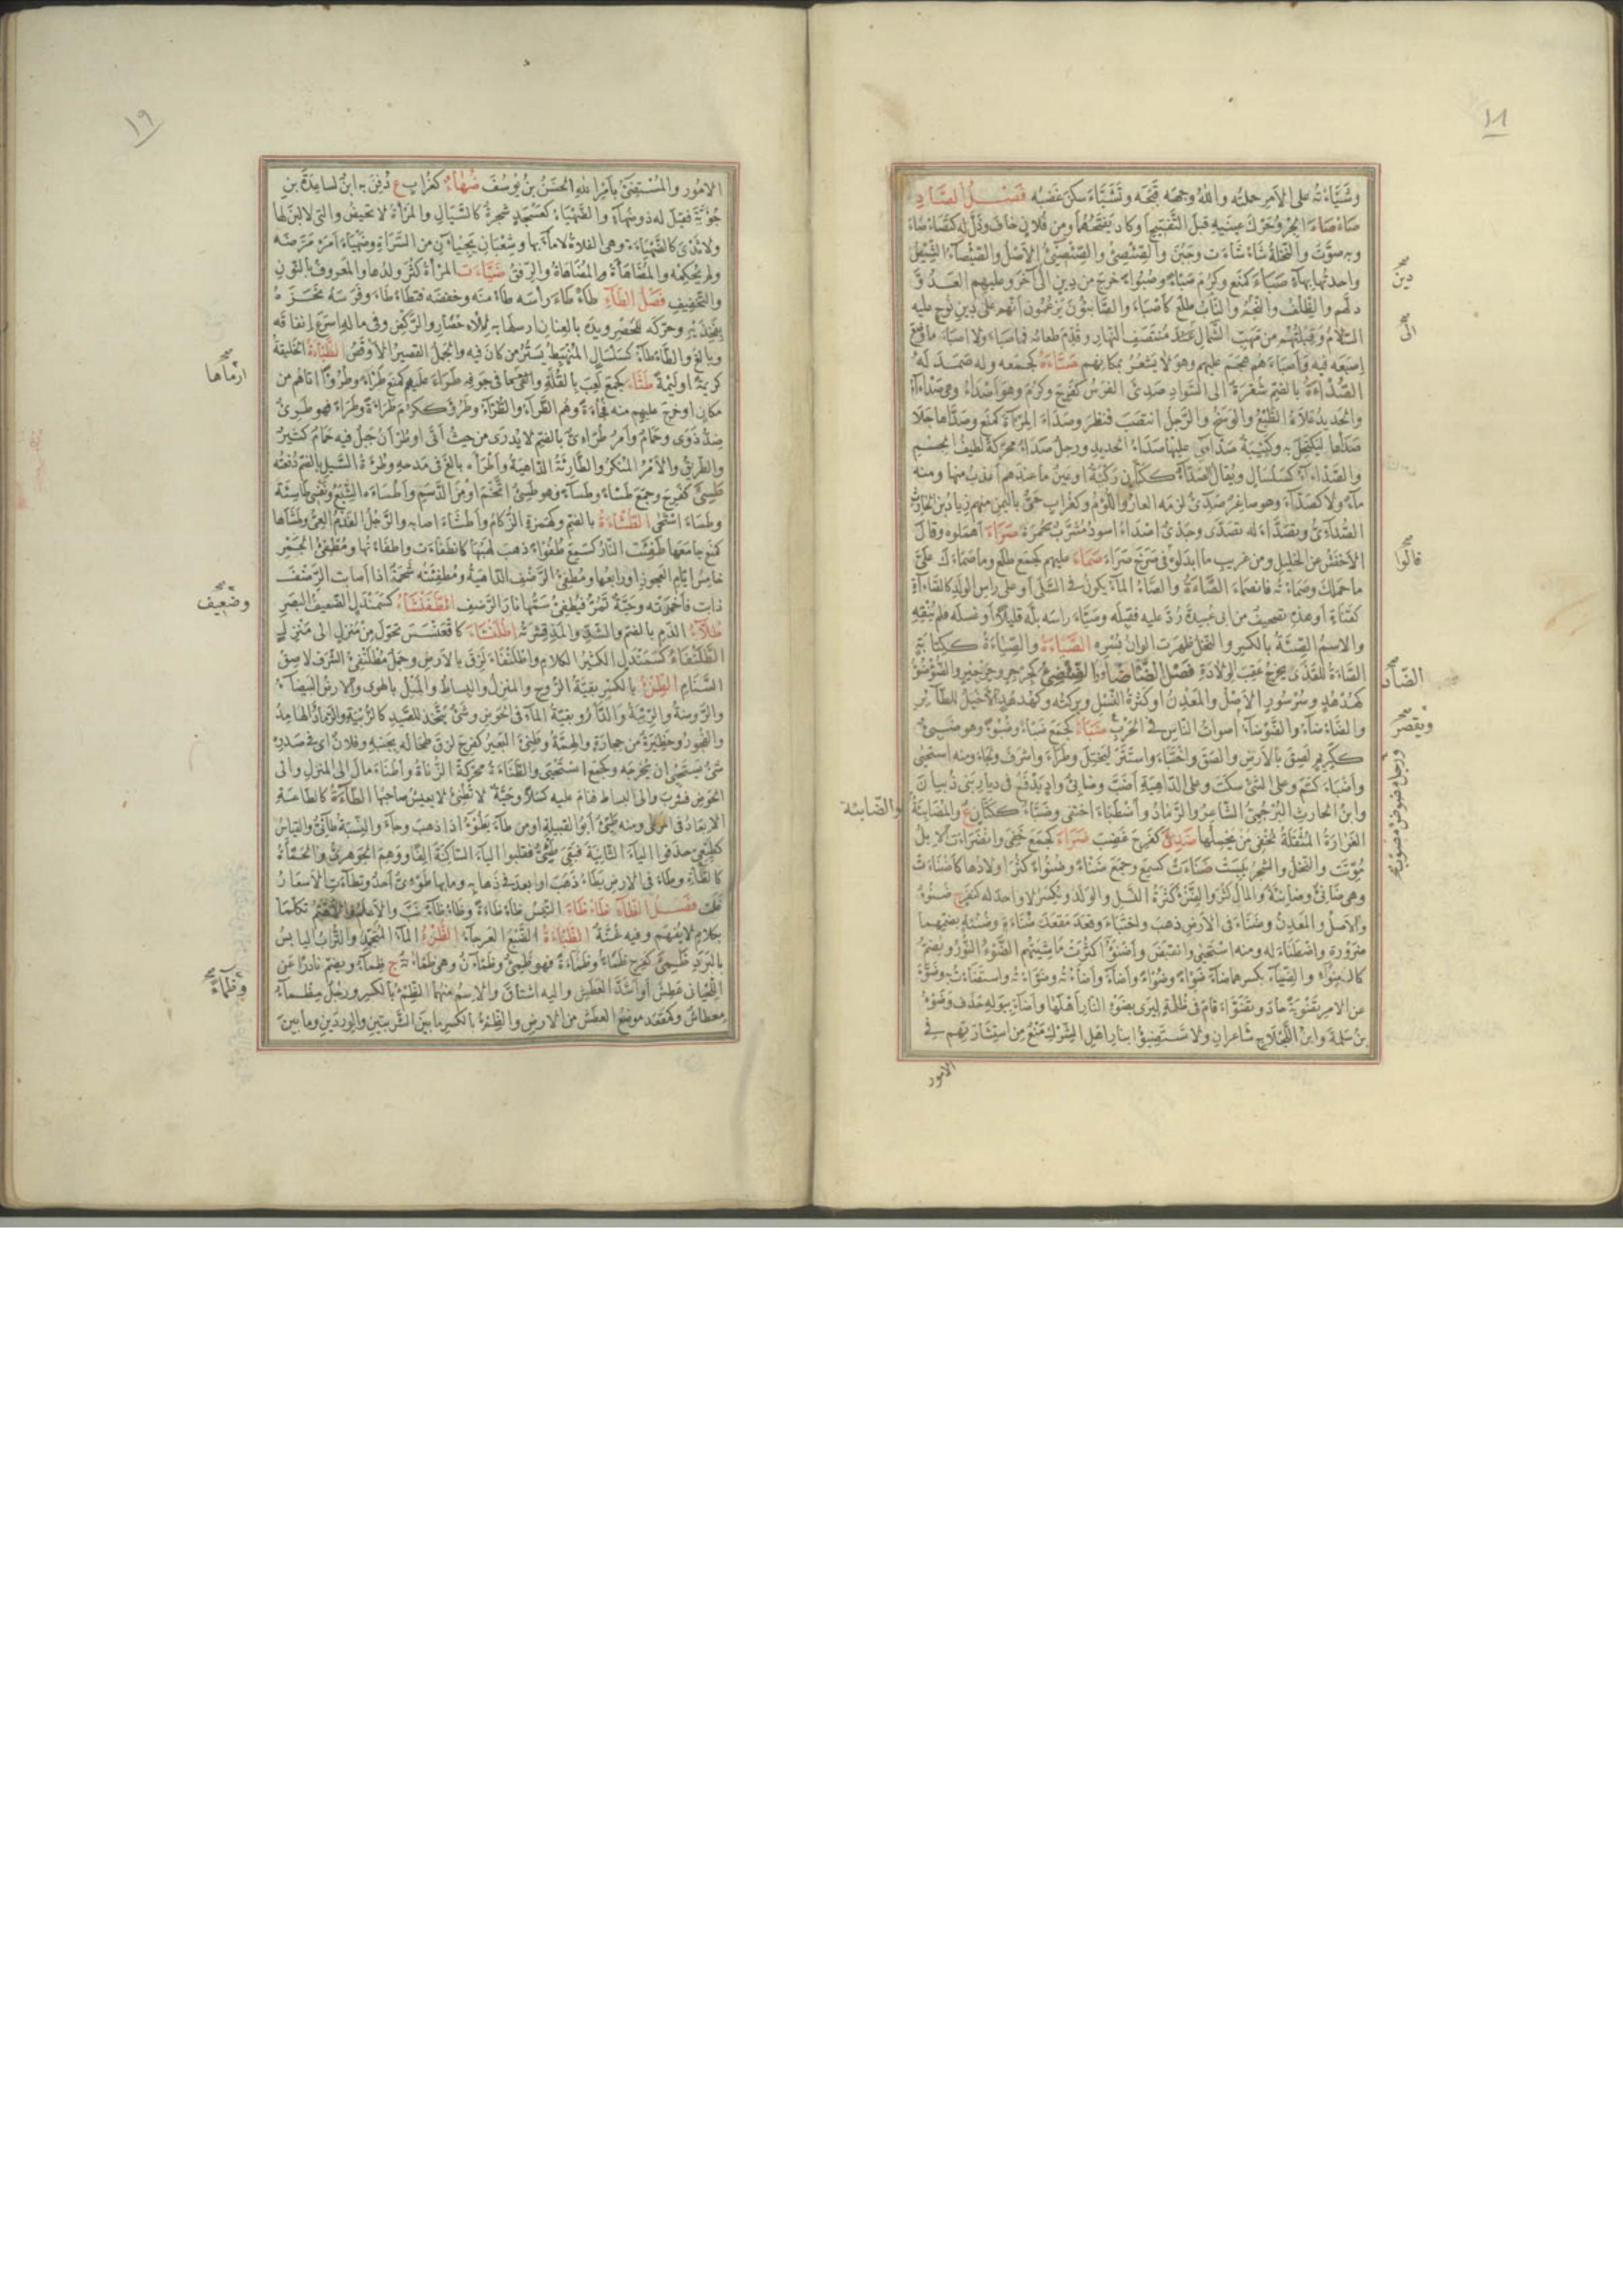 ١٨
وشَيَّأتُه على الامر حملتُه والله وجهَه قبّحه وتَشَيَّأ سكن غضبُه فصل الصَّاد
صأصأ الجرو حرّك عينيه قبل التفقيح او كاد يفتحهما ومن فلان خاف وذلّ له كتصأصأ
وبه صوّت والنخلة شاءشاءت وجبُنَ والصِّئصِئ والصِّئصِئُ الاصل والصيصاء الشيص
واحدتها بهاء صَبَأ كمنع وكرم صَبْأً وصُبُوأً خرج من دين الى آخر وعليهم العدوّ
دلّهم والظلف والنجم والناب طلع كأصبأ والصابئون يزعمون انهم على دين نوح عليه
السلام وقبلتهم من مهبّ الشمال عند منتصف النهار وقُدّم طعامه فما صبأ ولا اصبأ ما وضع
اصبعه فيه وأصبأهم هجم عليهم وهو لا يشعر بمكانهم صَتَأَهُ كجمعه وله صَمَدَ له
الصُّدْأةُ بالضم شُقرة الى السواد صَدِئ الفرس كفرح وكرم وهو أصدأ وهي صدآء
والحديد علاه الطبع والوسخ والرجل انتصب فنظر وصدأ المرآة كمنع وصدّأها جلا
صدأها ليكتحل به وكتيبة صدآى عليها صدأ الحديد ورجل صَدَأ محركة لطيف الجسم
والصدآء كسلسال ويقال الصَّدَّاء ككتّان ركيّة او عين ما عندهم أعذب منها ومنه
ماء ولا كصدّاء وهو صاغر صَدِئ لزمه العار واللؤم وكغراب حيّ باليمن منهم زياد بن الحارث
الصُّدائيّ وتصدّأ له تصدّى وجدي اصدأ اسود مشرب بحمرة صَرَأ اهملوه وقال
الاخفش عن الخليل ومن غريب ما ابدلوه في صرخ صرأ صَمَأ عليهم كجمع طلع وما صمأك عليّ
ما حملك وصمأته فانصمأ الصَّاءةُ والصاء الماء يكون في السلى او على رأس الولد كالصآءة
كقناة او هذه تصحيف من ابى عبيدة رُدّ عليه فقبله وصيّأ رأسه بلّه قليلا او غسله فلم ينقه
والاسم الصِّيئةُ بالكسر والنخل ظهرت الوان بُسره الصَّيَاءةُ والصِّيَاءةُ ككتابة
الصَّاءة للقذى يخرج عقب الولادة فصل الضاد الضِّئضِئُ كجرجر وجرجير والضُّؤضُؤ
كهُدهُد وسُرسور الاصل والمعدن او كثرة النسل وبركته وكهدهد الاخيل للطاير
والضَّأضَاء والضَّوضَاء اصوات الناس في الحرب ضَبَأ كجمع ضبأً وضُبُوأً وهو ضبيء
ككريم لصق بالارض والصق واختبأ واستتر ليختل وطرأ واشرف ولجأ ومنه استحيى
وأضبأ كتم وعلى الشيء سكت وعلى الداهية اضبّ وضابئ وادٍ يدفع في ديار بني ذبيان
وابن الحارث البرجمي الشاعر والرماد وأضطبأ اختفى وضبّاء ككتّان ع والمضابئة
الغرارة المثقلة تُخفي من يحملها ضَدِئ كفرح غضب ضَرَأ كجمع خفي وانضرأت الابل
مُوِّتت والنخل والشجر يبست ضَنَأت كسمع وجمع ضنأً وضنوأً كثر اولادها كأضنأت
وهي ضانئ وضانئة والمال كثر والضَّنْءُ كثرة النسل والولد ويكسر لا واحد له كنفر ج ضُنوءٌ
والاصل والمعدن وضَنَأ في الارض ذهب واختبأ وقعد مقعد ضُنأة وضُنأة بضمهما
ضرورة واضطنأ له ومنه استحيى وانقبض وأضنؤا كثرت ماشيتهم الضَّوْءُ النور ويضم
كالضواء والضياء بكسرهما ضاء ضَوءًا وضُوءًا وأضاء وأضأتُه وضوّأتُه واستضأتُ به وضَوَّأ
عن الامر تضوئة حادَ وتضوّأ قام في ظلمة ليرى بضوء النار اهلها وأضاء ببوله حذف وضَوْءُ
بن سَلَمة وابن اللجلاج شاعران ولا تستضيؤا بنار اهل الشرك منعٌ من استشارتهم في
الامور
دين
الى
قالوا
الضّآد
ويقصر
ورجل مضوض مصوّت
والضّابئة
١٩
الامور والمستضيء بأمر الله الحسن بن يوسف ضُهَاء كغراب ع دُفن به ابن لساعدة بن
جؤيّة فقيل له ذو ضهاء والضَّهْيَأ كعسجد شجرة كالسيال والمرأة لا تحيض والتي لا لبن لها
ولا ثدي كالضهيأة وهي الفلاة لا ماء بها وشعبان يجيئان من السراة وضهيأ امره مرّضه
ولم يحكمه والمضاهأة المضاهاة والرفق ضَيَّأت المرأة كثر ولدها والمعروف بالنون
والتخفيف فصل الطاء طأطأ رأسه طأمنه وخفضه فتطأطأ وفرسه نحزه
بفخذيه وحرّكه للحُضر ويده بالعنان ارسلها به للاحضار والركض وفي ماله اسرع انفاقه
وبالغ والطأطاء كسلسال المنهبط يستر من كان فيه والجمل القصير الاوقص الطُّبأةُ الخليقة
كريمة او لئيمة طَثَأ كجمع لعب بالقلة والقى ما في جوفه طَرَأ عليهم كمنع طَرْأً وطُروءًا اتاهم من
مكان او خرج عليهم منه فجأة وهم الطُّرَّاء والطُّرَآء وطرؤ ككرم طراءة وطراء فهو طريء
ضد ذوى وحمام وأمر طُرآنيّ بالضم لا يُدرى من حيث أتى او طُرآن جبل فيه حمام كثير
والطريق والامر المنكر والطارئة الداهية وأطرأه بالغ في مدحه وطُرأة السيل بالضم دُفعته
طَسِئَ كفرح وجمع طَسأً وطَساءً فهو طسيء اتّخم او من الدسم وأطسأه الشبع ونفسي طاسئة
وطسأ استحيى الطُّشأةُ بالضم وكهمزة الزكام وأطشأ اصابه والرجل الفدم العيّ وطشأها
كمنع جامعها طَفِئت النار كسمع طفوءًا ذهب لهبها كانطفأت واطفأتها ومُطفئ الجمر
خامس ايام العجوز او رابعها ومطفئ الرضف الداهية ومطفئته شحمة اذا اصابت الرضف
ذابت فأخمدته وحيّة تمرّ فيُطفئ سمّها نار الرضف الطَّفَنْشَأ كسمندل الضعيف البصر
طُلاءُ الدم بالضم والشد والمد قشرته اطلنشأ كاقعنسس تحوّل من منزل الى منزل
الطَّلَنْفَأُ كسمندل الكثير الكلام واطلنفأ لزق بالارض وجمل مطلنفئ الشرف لاصق
السنام الطِّنْءُ بالكسر بقيّة الروح والمنزل والبساط والميل بالهوى والارض البيضاء
والروضة والريبة والداء وبقيّة الماء في الحوض وشيء يتخذ للصيد كالزبية والرماد الهامد
والفجور وحظيرة من حجارة والهمّة وطَنِئَ البعير كفرح لزق طحاله بجنبه وفلان اى في صدره
شيء يستحيي ان يخرجه وكجمع استحيى والطَّنَأةُ محركة الزناة وأطنأ مال الى المنزل والى
الحوض فشرب والى البساط فنام عليه كسلا وحيّة لا تطنئ لا يعيش صاحبها الطَّاءةُ كالطاعة
الابعاد في المرعى ومنه طيّئ ابو القبيلة او من طاء يطوء اذا ذهب وجاء والنسبة طائيّ والقياس
كطيعيّ حذفوا الياء الثانية فبقي طيئيّ فقلبوا الياء الساكنة الفا ووهم الجوهري والحمأة
كالطاءة وطاء في الارض يطاء ذهب او ابعد في ذهابه وما بها طوئيّ احد وتطاءت الاسعار
غلت فصل الظاء ظأظأ التيس ظأظأة وظأظاء نبّ والاعلم والاهتم تكلما
بكلام لا يفهم وفيه غنّة الظَّبأةُ الضبع العرجاء الظَّرْءُ الماء المتجمد والتراب اليابس
بالبرد ظَمِئَ كفرح ظَمْأً وظَمَأً وظَماءةً فهو ظمئ وظمآن وهي ظمأى ج ظماء ويضم نادرا عن
اللحياني عطش او اشد العطش واليه اشتاق والاسم منهما الظِّمْءُ بالكسر ورجل مظماء
معطاش وكمقعد موضع العطش من الارض والظِّمْءُ بالكسر ما بين الشربتين والوردين وما بين
ارْمأها
وضعيف
وظماءً